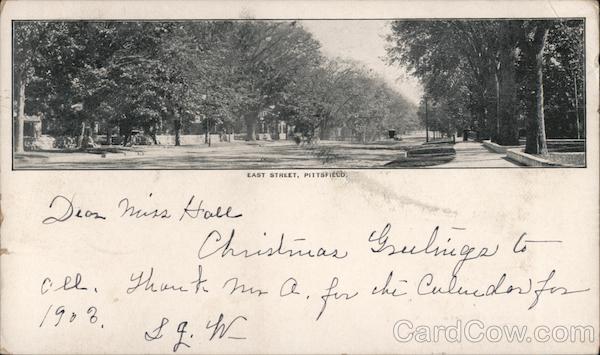 EAST STREET, PITTSFIELD.
Dear Miss Hall
Christmas Greetings to
all. Thank Mr A. for the Calendar for
1903.
S. G. W
CardCow.com